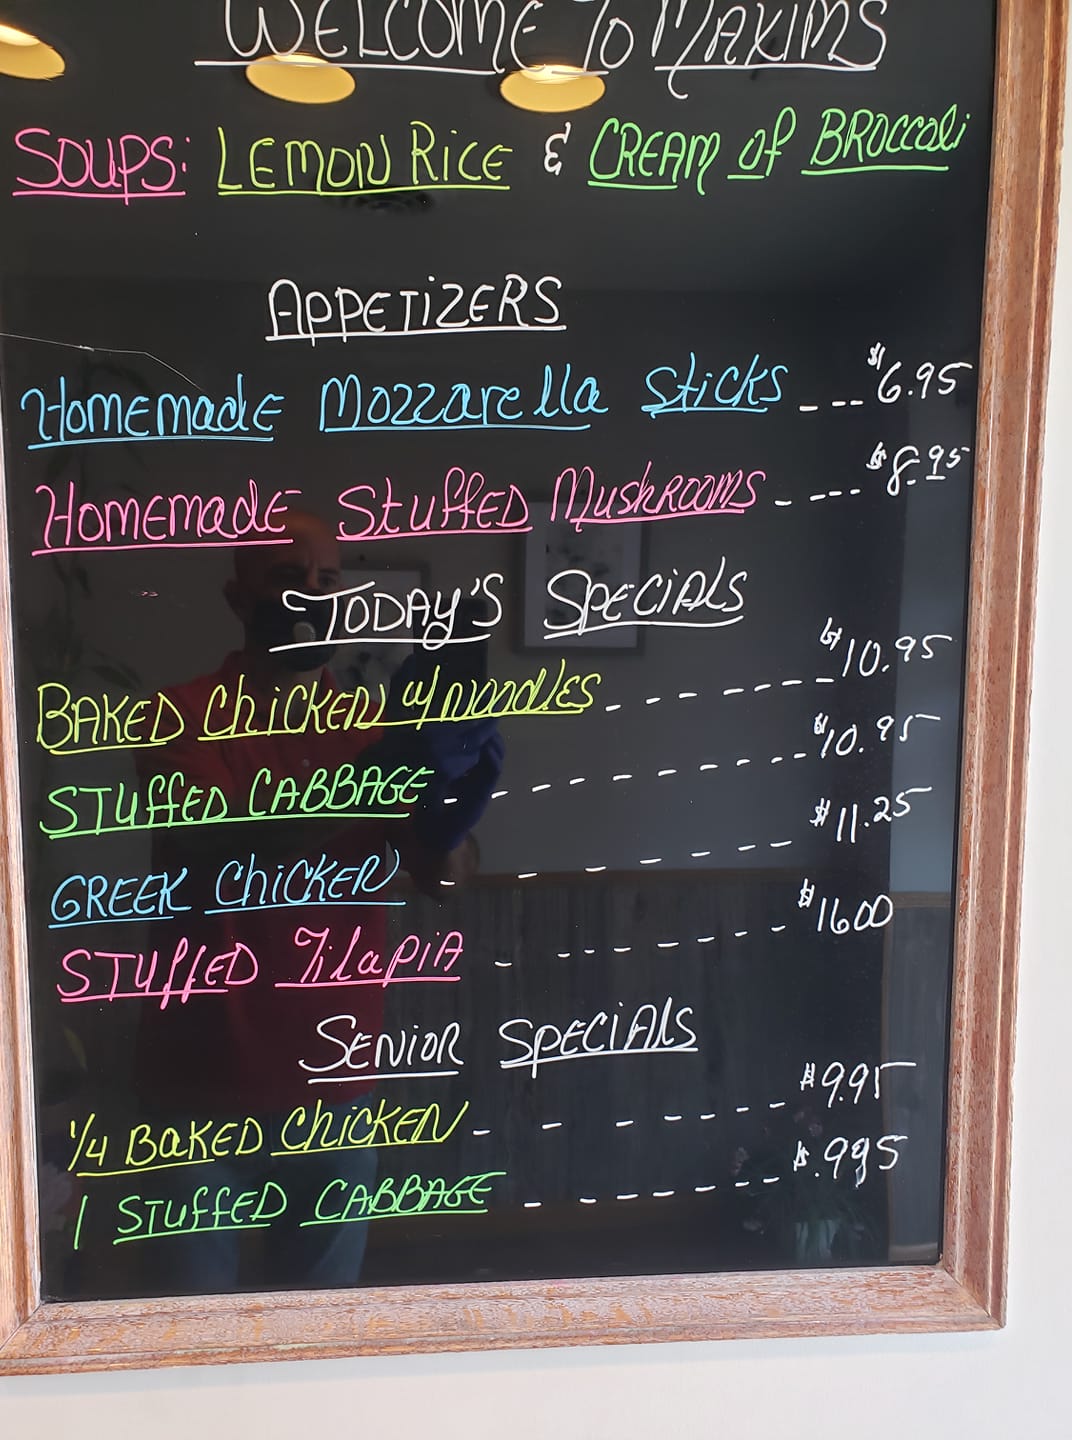 WELCOME TO MAXIMS
SOUPS: LEMON RICE & CREAM of BROCCOLi
APPETIZERS
HOMEmadE MOZZArella Sticks _ _ _ _ $6.95
HOMEmadE StuffED MushROOMS - - - - - $8.95
TODAY'S SPECiAls
BAKED ChiCKEN w/ NOOdlES - - - - - - - - $10.95
STUffED CABBAGE - - - - - - - - - - $10.95
GREEK ChiCKEN - - - - - - - $11.25
STUffED TilapiA - - - - - - - - $1600
SENiOR SPECiAls
1/4 BAKED ChiCKEN - - - - - - - - $9.95
1 STUffED CABBAGE - - - - - - - - $.995